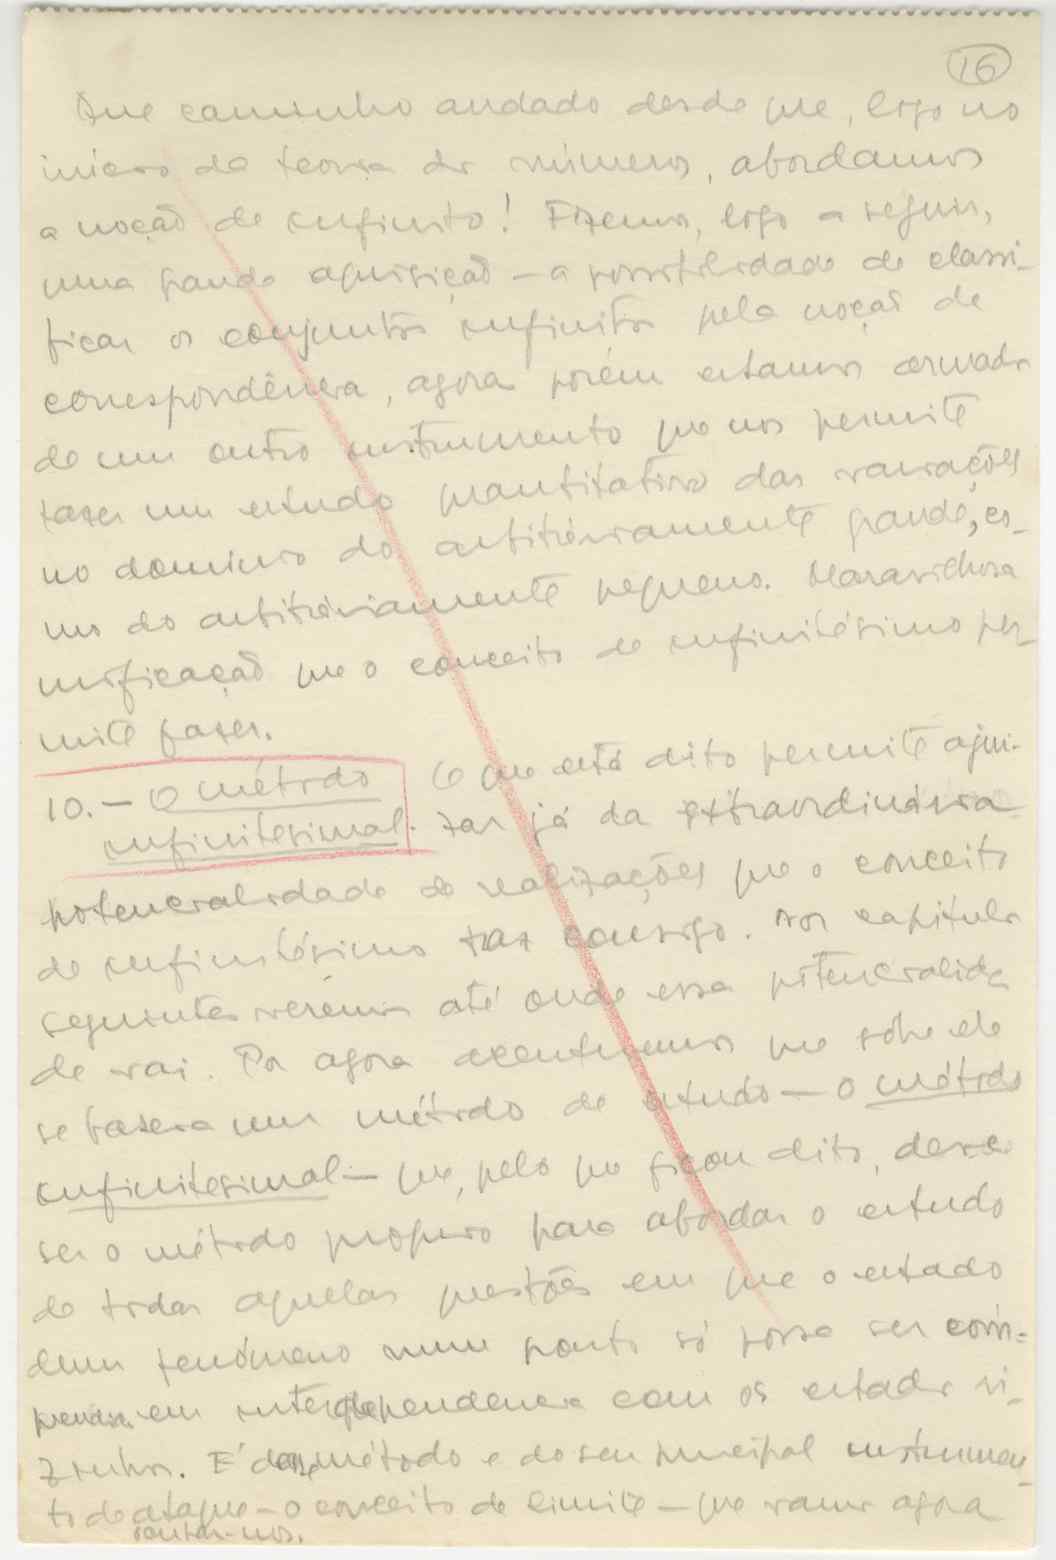 16
Que caminho andado desde que, logo no
início da teoria dos números, abordamos
a noção de infinito! Fizemos, logo a seguir,
uma grande aquisição — a possibilidade de classi-
ficar os conjuntos infinitos pela noção de
correspondência, agora porém estamos armados
de um outro instrumento que nos permite
fazer um estudo quantitativo das variações
no domínio do arbitràriamente grande, co-
mo do arbitràriamente pequeno. Maravilhosa
unificação que o conceito de infinitésimo per-
mite fazer.
10. — O método O que está dito permite ajui-
infinitesimal. zar já da extraordinária
potencialidade de realizações que o conceito
de infinitésimo traz consigo. Nos capítulos
seguintes veremos até onde essa potencialida
de vai. Por agora acentuemos que sôbre ele
se baseia um método de estudo — o método
infinitesimal — que, pelo que ficou dito, deve
ser o método próprio para abordar o estudo
de todas aquelas questões em que o estado
dum fenómeno num ponto só possa ser com-
preendido em interdependência com os estados vi-
zinhos. É dêsse método e do seu principal instrumen-
to de ataque — o conceito de limite — que vamos agora